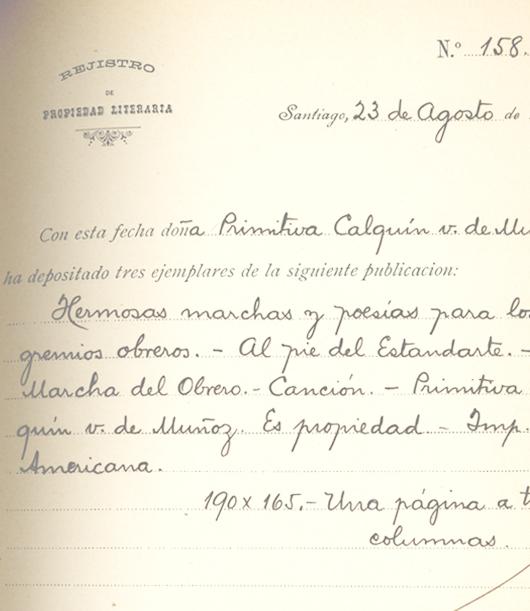 REJISTRO
DE
PROPIEDAD LITERARIA
N.º 158.
Santiago, 23 de Agosto de
Con esta fecha doña Primitiva Calquín v. de Mu
ha depositado tres ejemplares de la siguiente publicacion:
Hermosas marchas y poesías para los
gremios obreros. - Al pie del Estandarte. -
Marcha del Obrero. - Canción. - Primitiva
quín v. de Muñoz. Es propiedad - Imp.
Americana.
190 x 165. - Una página a t
columnas.